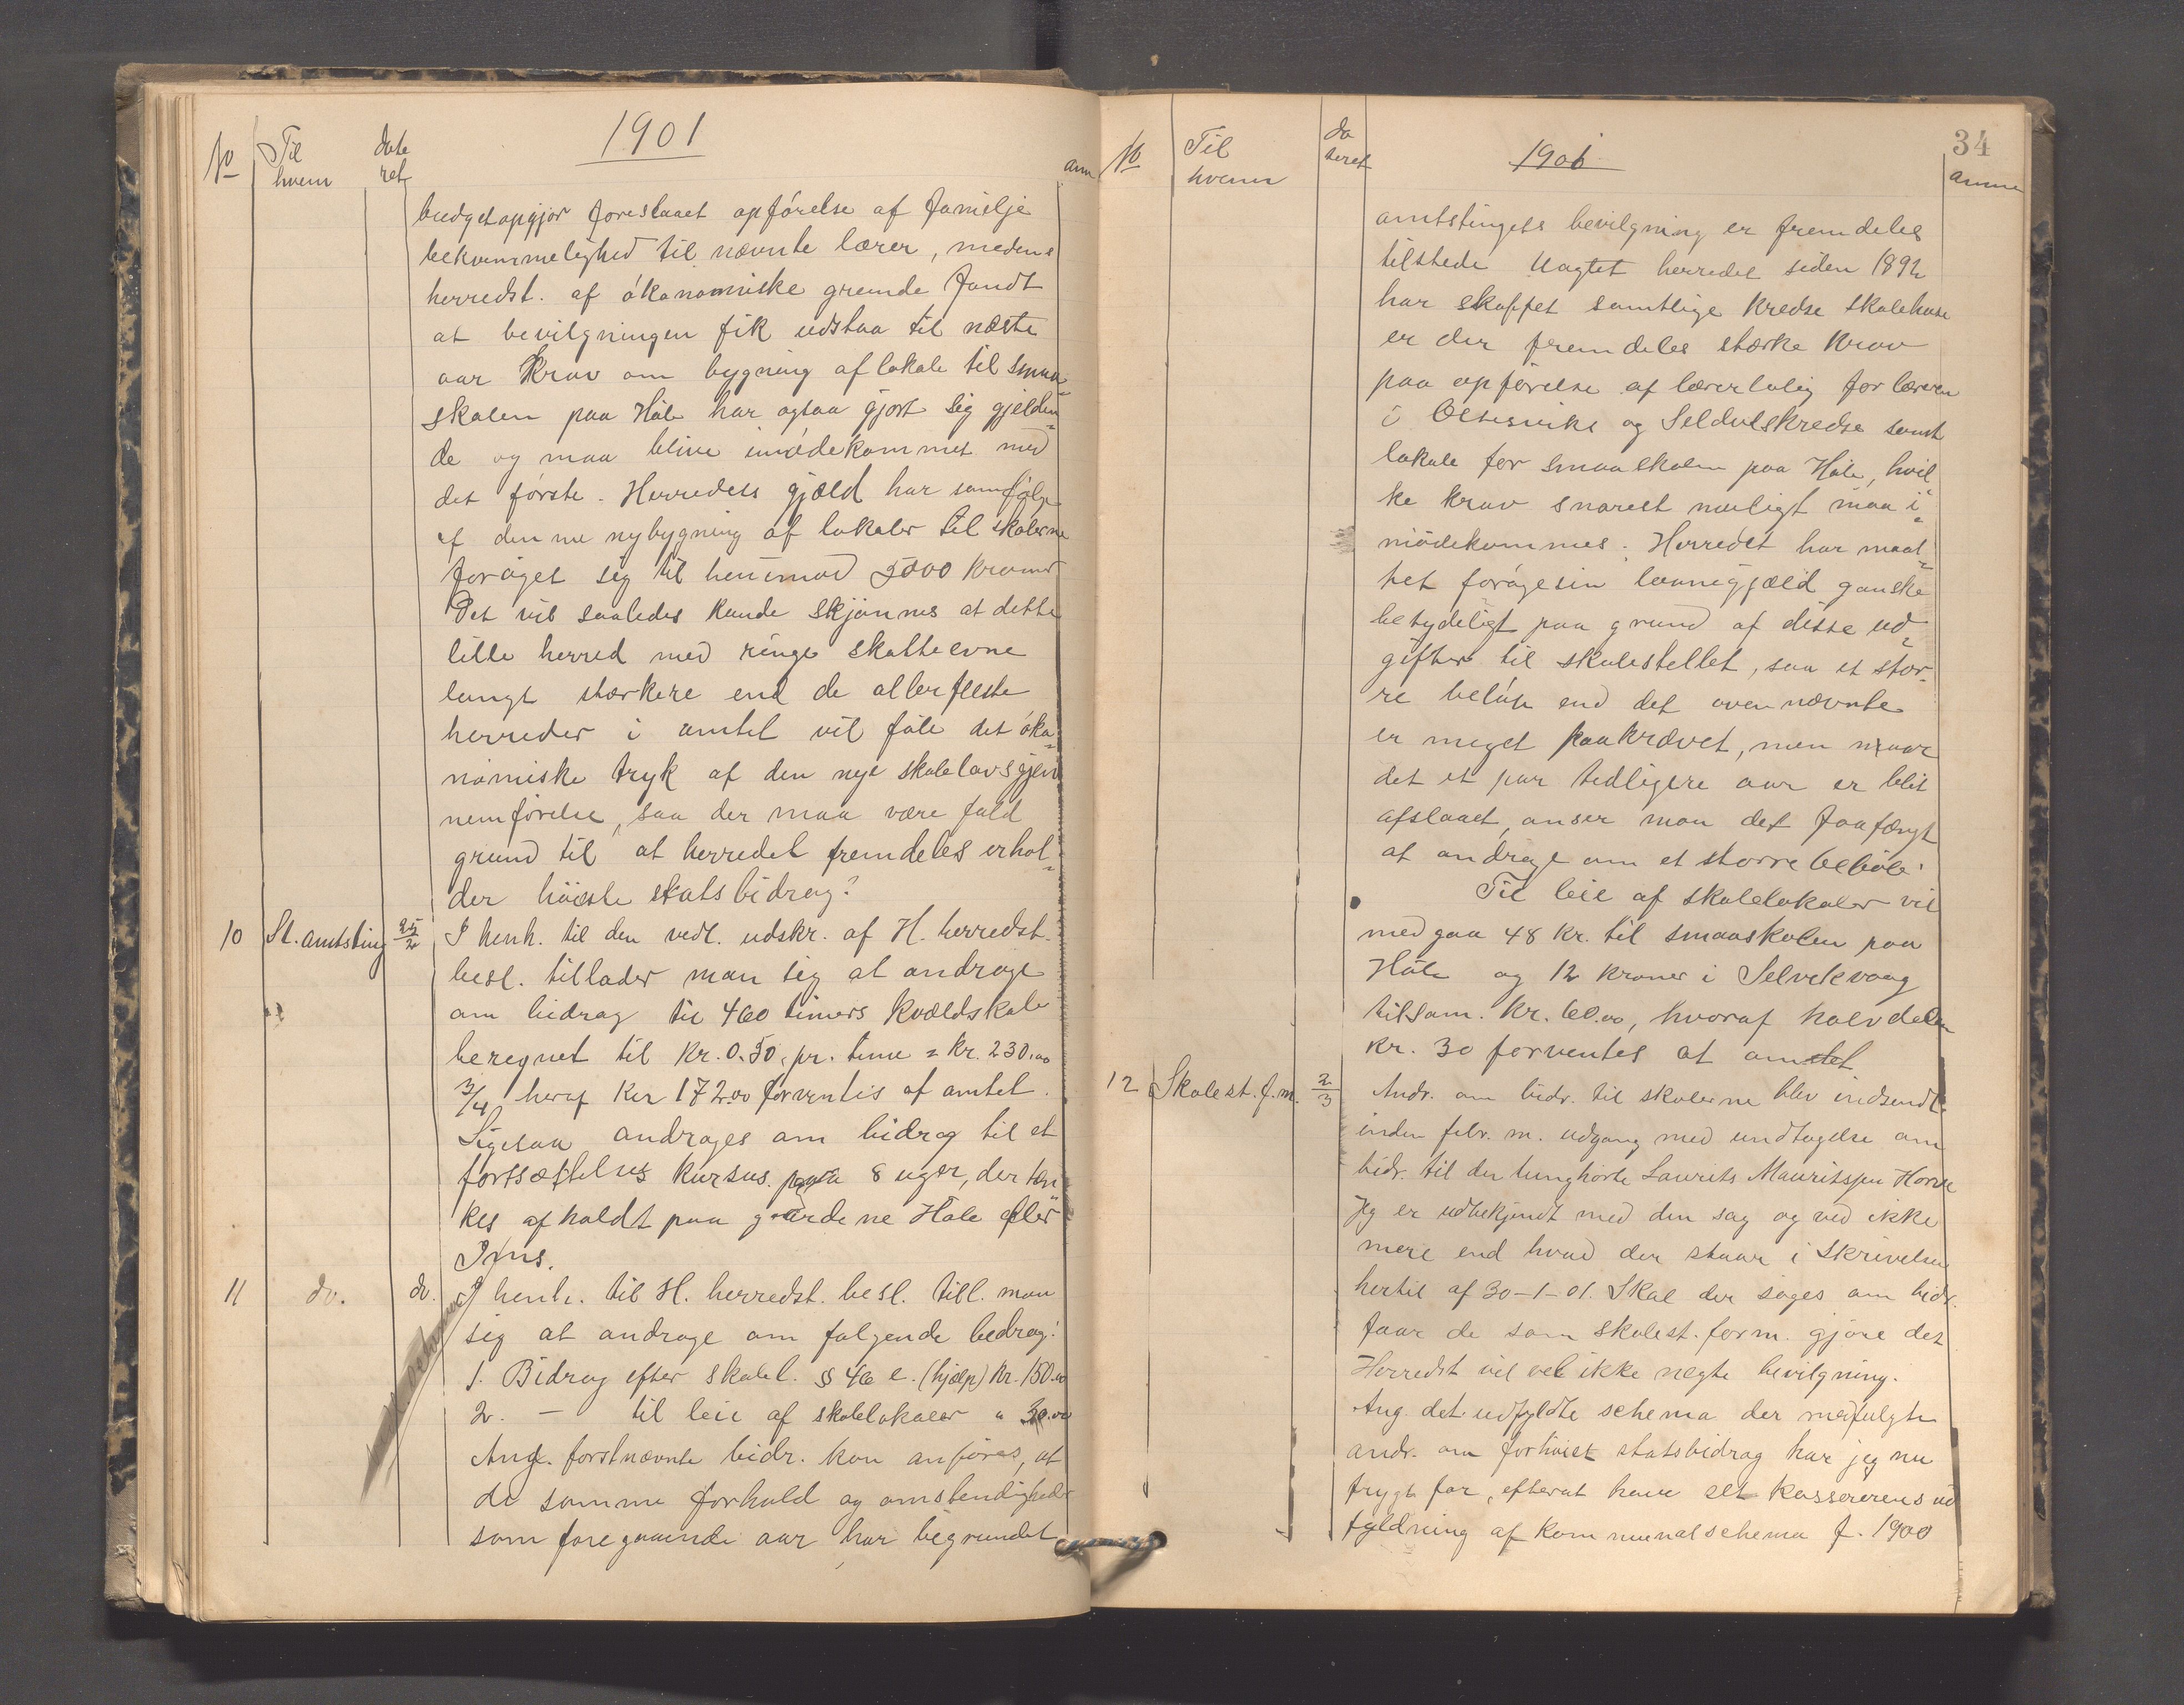 1901
No Til hvem date ret anm
budgetopgjør foreslaaet opførelse af familje
bekvemmelighed til nævnte lærer, medens
herredst. af økonomiske grunde fandt
at bevilgningen fik udstaa til næste
aar Krav om bygning af lokale til smaa=
skolen paa Håle har ogsaa gjort sig gjelden=
de og maa blive imødekommet med
det første. Herredets gjæld har somfølge
af denne nybygning af lokaler til skolerne
forøget sig til henimod 5000 kroner
Det vil saaledes kunde skjønnes at dette
lille herred med ringe skatteevne
langt stærkere end de allerfleste
herreder i amtet vil føle det øko=
nomiske tryk af den nye skolelovsgjen
nemførelse, saa der maa være fuld
grund til at herredet fremdeles erhol=
der höieste statsbidrag?
10 St. amtsting 25/2 I henh. til den vedl. udskr. af H. herredst.
besl. tillader man sig at andrage
om bidrag til 460 timers kvældskole
beregnet til Kr. 0.50, pr. time = kr. 230.00
3/4 heraf Kr 172.00 forventes af amtet.
Ligesaa andrages om bidrag til et
fortsættelses kursus. paa 8 uger, der tæn=
kes afholdt paa gaardene Håle eller
Ims.
11 do. do. I henh. til H. herredst. besl. till. man
sig at andrage om følgende bedrag:
1. Bidrag efter skolel. § 46 e. (hjælp) Kr. 150.00
2. — til leie af skolelokaler " 30.00
Ang. førstnævnte bidr. kan anføres, at
de samme forhold og omstendigheder
som foregaaende aar har begrundet
34
No Til hvem da teret 1901 anm
amtstingets bevilgning er fremdeles
tilstede Uagtet herredet siden 1892
har skaffet samtlige kredse skolehuse
er der fremdeles stærke krav
paa opførelse af lærerbolig for læreren
i Oltesviks og Seldalskredse samt
lokale for smaaskolen paa Håle, hvil
ke krav snarest muligt maa i=
mødekommes. Herredet har maat=
tet forøge sin laanegjæld ganske
betydeligt paa grund af disse ud=
gifter til skolestellet, saa et stør=
re beløb end det ovennævnte
er meget paakrævet, men naar
det et par tidligere aar er blit
afslaaet, anser man det faafængt
at andrage om et større beløb.
Til leie af skolelokaler vil
medgaa 48 kr. til smaaskolen paa
Håle og 12 kroner i Selvikvaag
tilsam. Kr. 60.00, hvoraf halvdelen
kr. 30 forventes at amtet
12 Skolest. f.m. 2/3 Andr. om bidr. til skolerne blev indsendt
inden febr. m. udgang med undtagelse om
bidr. til den tunghørte Laurits Mauritssen
Jeg er udbekjendt med den sag og ved ikke
mere end hvad der staar i skrivelsen
hertil af 30-1-01. Skal der søges om bidr.
faar de som skolest. form. gjøre det
Herredst vil vel ikke negte bevilgning.
Ang. det udfyldte schema der medfulgte
andr. om forhøiet statsbidrag har jeg nu
frygt for, efterat have set kassererens ud
fyldning af kommunalschema f. 1900